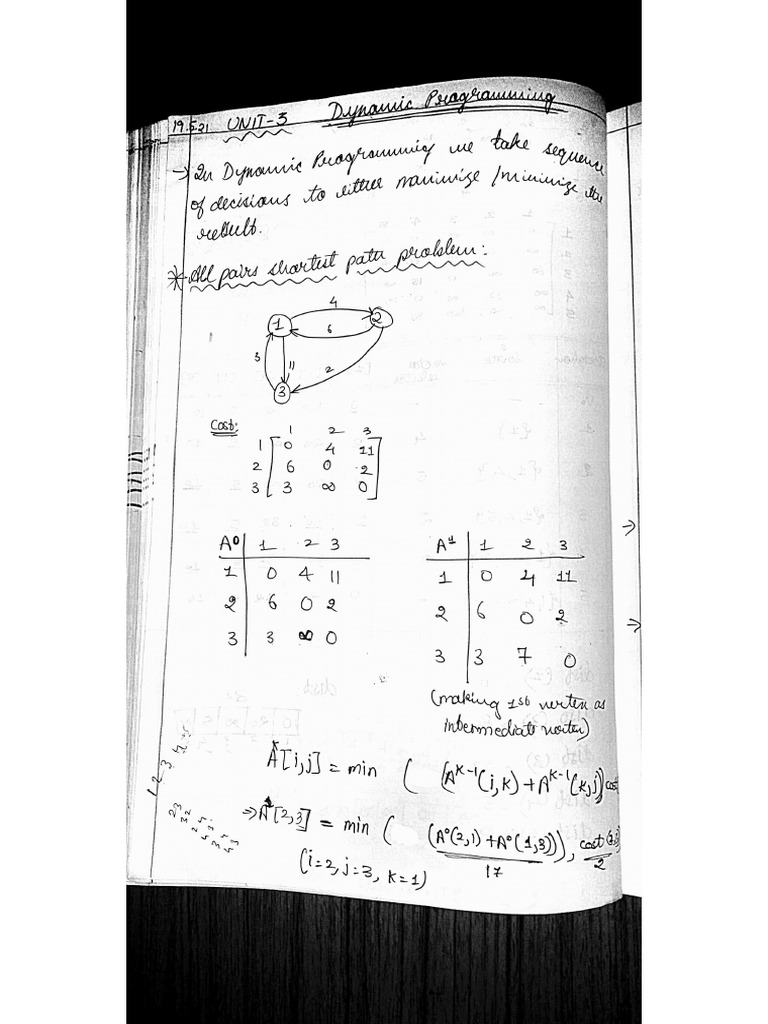 19.5.21 UNIT-3 Dynamic Programming
→ In Dynamic Programming we take sequence
of decisions to either maximize / minimize the
result.
* All pairs shortest path problem:
4
1 2
6
3 11 2
3
Cost:
1 2 3
1 0 4 11
2 6 0 2
3 3 ∞ 0
A⁰ 1 2 3
1 0 4 11
2 6 0 2
3 3 ∞ 0
A¹ 1 2 3
1 0 4 11
2 6 0 2
3 3 7 0
(making 1st vertex as
intermediate vertex)
Aᵏ[i,j] = min ( (Aᵏ⁻¹(i,k) + Aᵏ⁻¹(k,j)) cost
⇒ A¹[2,3] = min ( (A⁰(2,1) + A⁰(1,3))), cost(2,3)
17 2
(i=2, j=3, k=1)
1 2 3 4 5